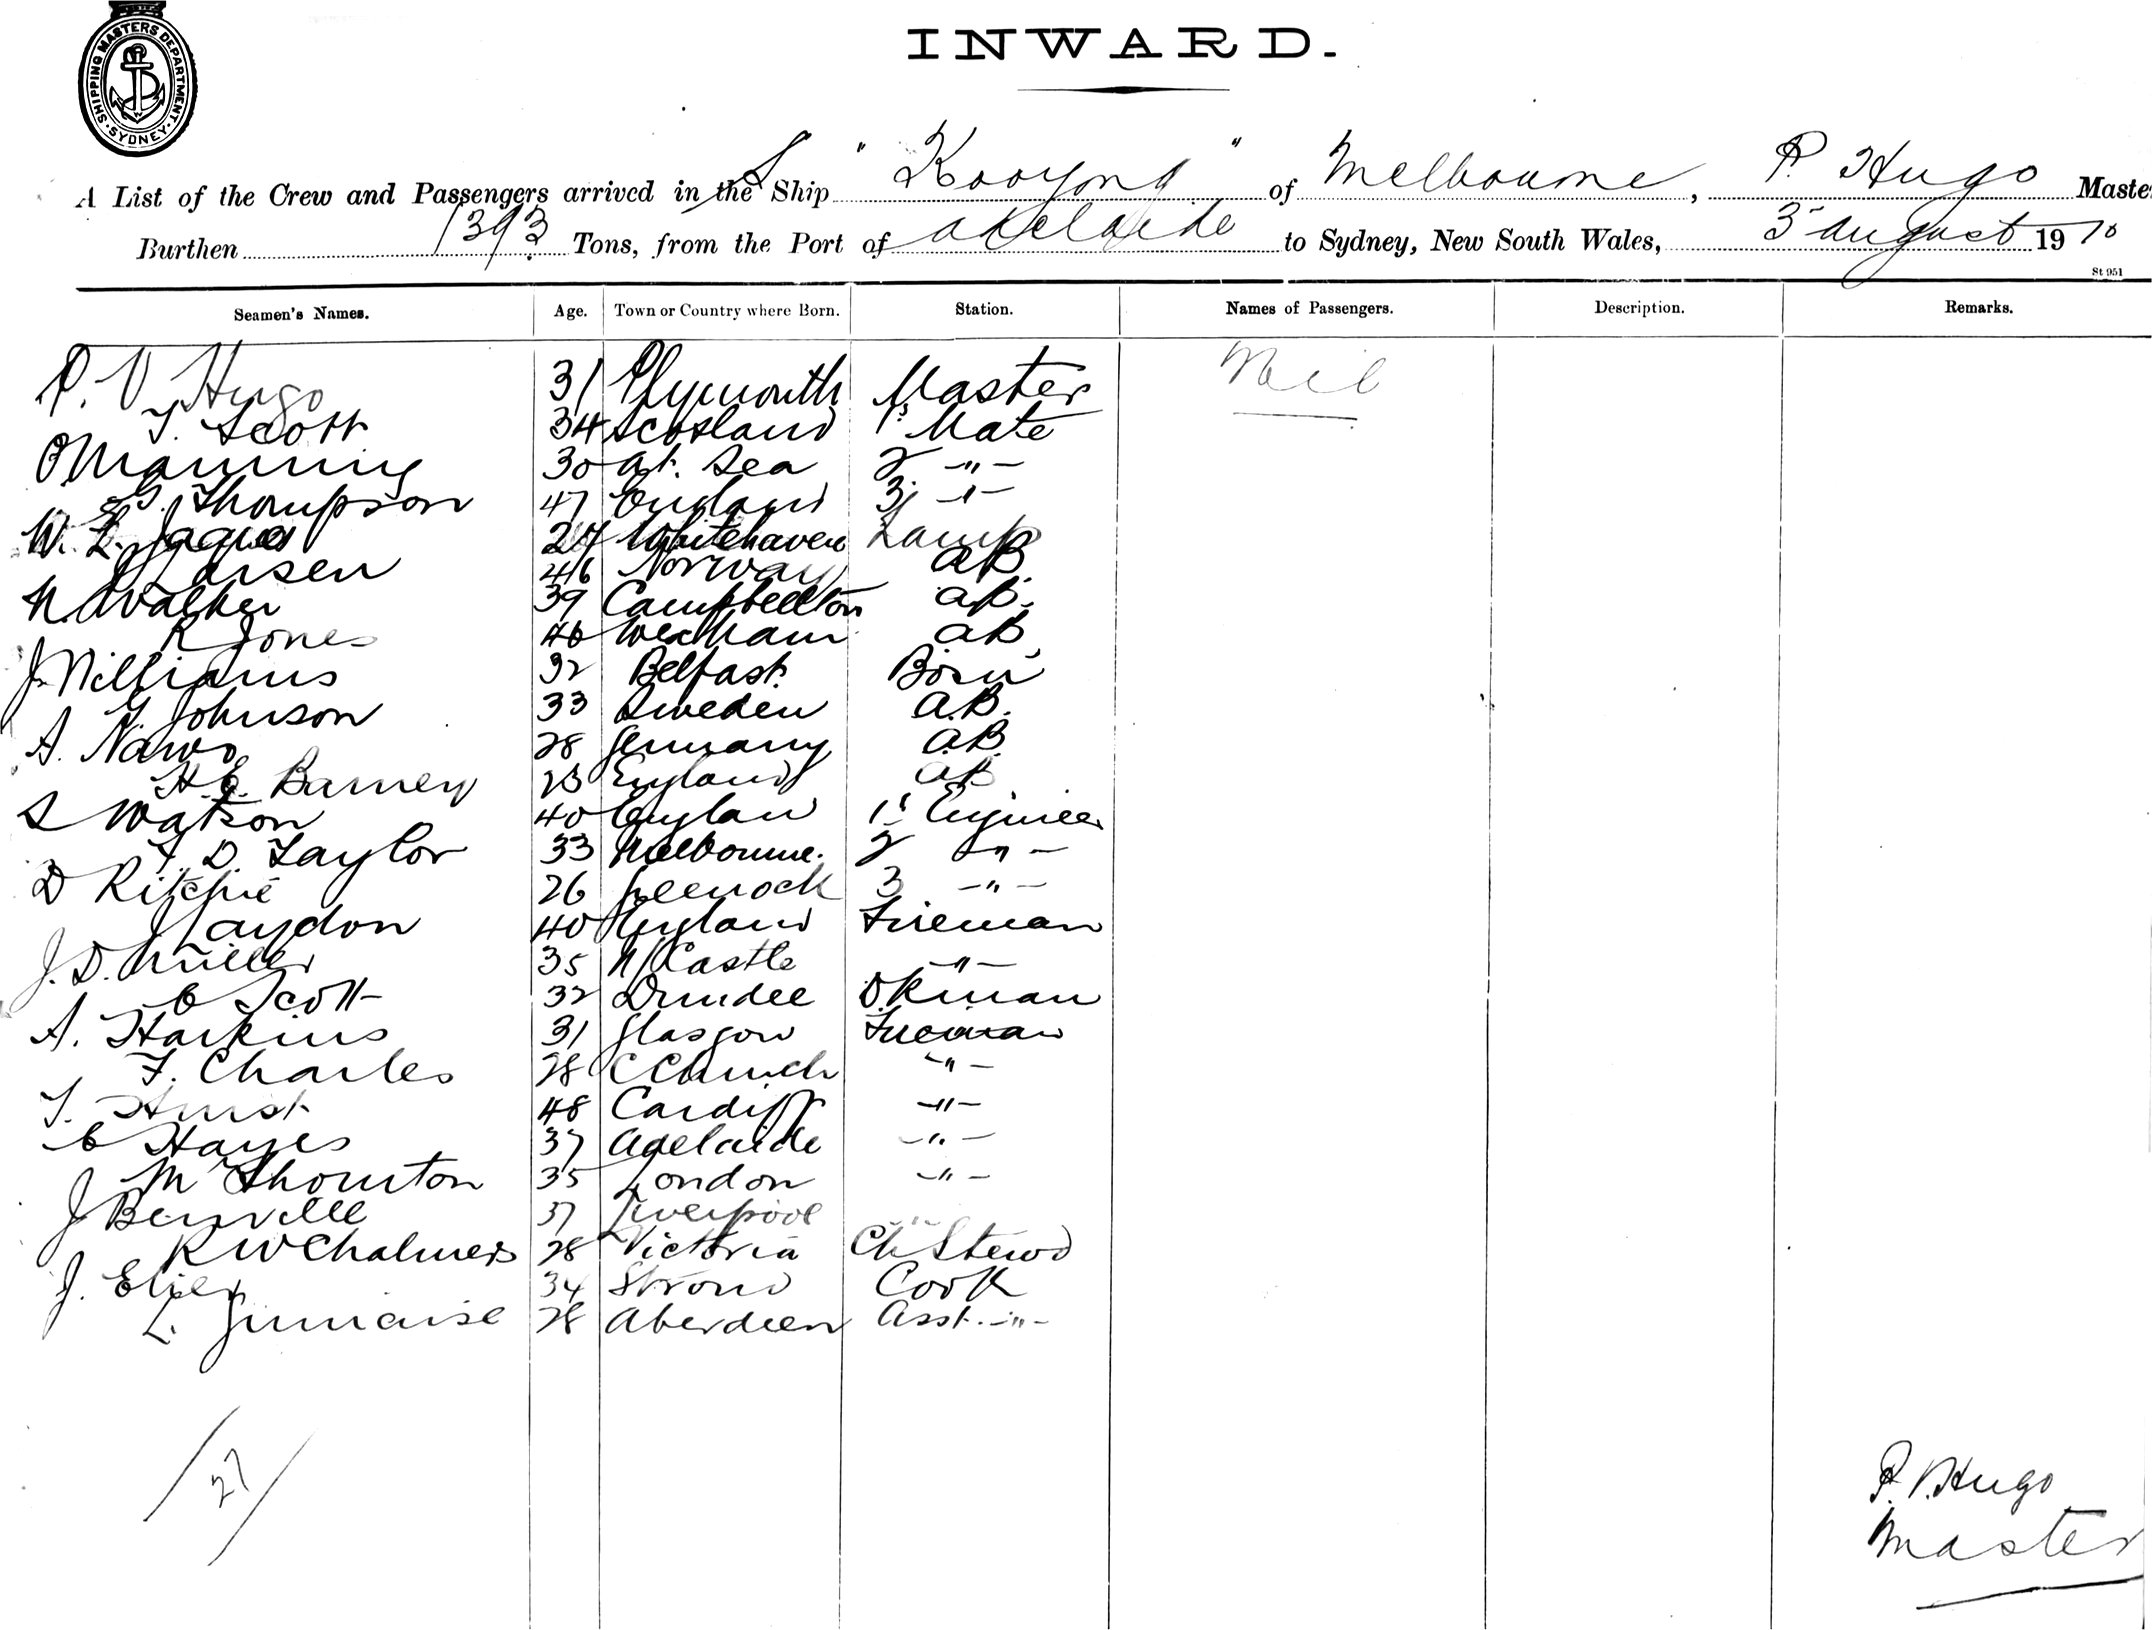 SHIPPING MASTERS DEPARTMENT. SYDNEY
INWARD.
A List of the Crew and Passengers arrived in the S Ship "Kooyong" of Melbourne, P. Hugo Maste
Burthen 1393 Tons, from the Port of Adelaide to Sydney, New South Wales, 5 August 1910
St 951
Seamen's Names. Age. Town or Country where Born. Station. Names of Passengers. Description. Remarks.
P. V. Hugo 31 Plymouth Master Nil
T. Scott 34 Scotland 1s Mate
Manning 30 at. Sea 2 -"-
G. Thompson 47 England 3 -"-
W. L. Jaques 24 Whitehaven Lamp
Larsen 46 Norway AB.
N. Walker 39 Campbellton AB.
R Jones 46 Wexham AB
J. Williams 32 Belfast. Bosn
G. Johnson 33 Sweden A.B.
A. Nawo 28 Germany A.B.
H. C. Barney 23 England AB
S Watson 40 Englan 1s Engineer
T. D. Taylor 33 Melbourne. 2 -"-
D Ritchie 26 Greenock 3 -"-
J Haydon 40 England Fireman
J. D. Miller 35 N/Castle -"-
C Scott 32 Dundee Dkman
A. Harkins 31 Glasgow Fireman
F. Charles 28 C Church -"-
T. Hurst 48 Cardiff -"-
C Hayes 37 Adelaide -"-
M Thornton 35 London -"-
J Benville 37 Liverpool -"-
R W Chalmers 28 Victoria Ch Stewd
J. Elier 34 Stroud Cook
L. 28 Aberdeen Asst. -"-
27
P. V. Hugo
Master